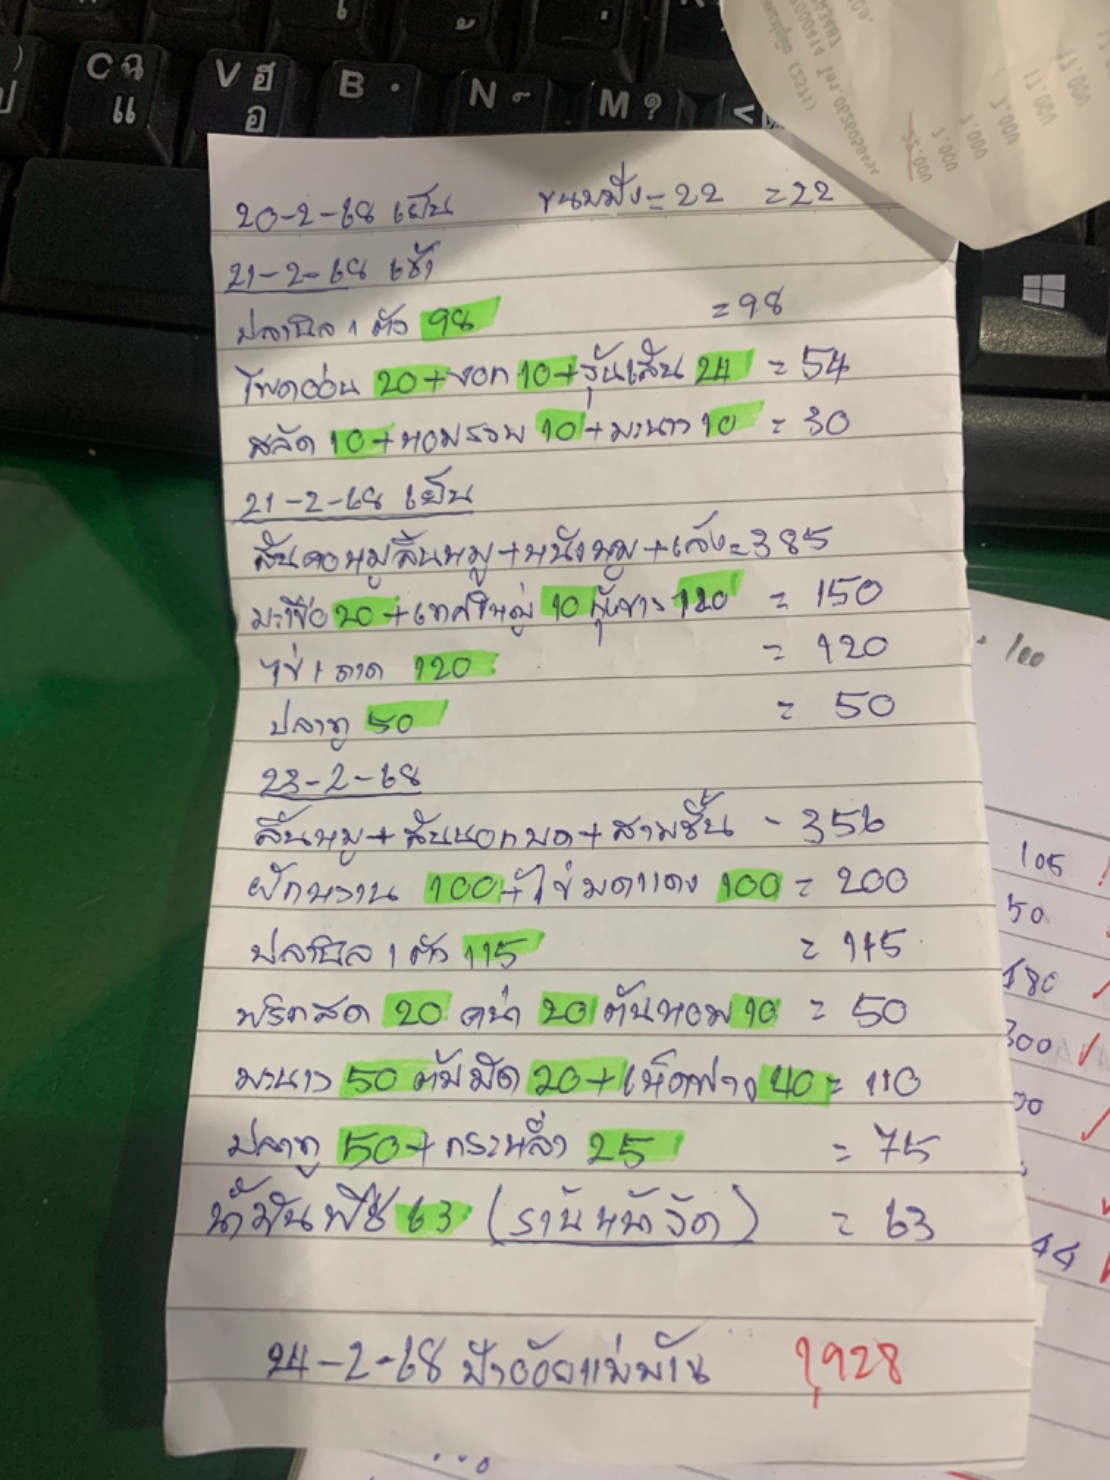 C ฉ แ
V ฮ อ
B .
N
M ?
<
20-2-68 เย็น ขนมปัง = 22 = 22
21-2-68 เช้า
ปลานิล 1 ตัว 98 = 98
โพดอ่อน 20 + งอก 10 + วุ้นเส้น 24 = 54
สลัด 10 + หอมรวม 10 + มะนาว 10 = 30
21-2-68 เย็น
สันคอหมูลิ้นหมู + หนังหมู + เล้ง = 385
มะเขือ 20 + เทศใหญ่ 10 กุ้งขาว 120 = 150
ไข่ 1 ถาด 120 = 120
ปลาทู 50 = 50
23-2-68
ลิ้นหมู + สันนอกบด + สามชั้น - 356
ผักหวาน 100 + ไข่มดแดง 100 = 200
ปลานิล 1 ตัว 115 = 115
พริกสด 20 คน้า 20 ต้นหอม 10 = 50
มะนาว 50 20 + เห็ดฟาง 40 = 110
ปลาทู 50 + กระหล่ำ 25 = 75
น้ำมันพืช 63 (ร้านหน้าวัด) = 63
24-2-68 ป้าอ้อยแม่บ้าน 1,928
100
105
50
180
300
00
44